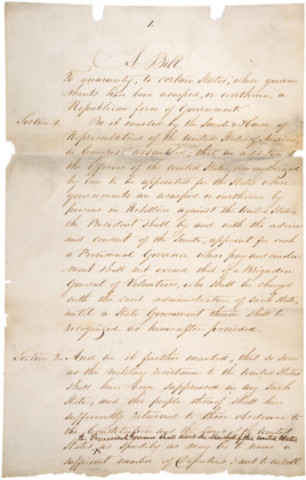 1.
A Bill
To guaranty, to certain States, whose govern
ments have been usurped, or overthrown, a
Republican form of Government.
Section 1. Be it enacted by the Senate & House of
Representatives of the United States of America
in Congress assembled, that in addition to
the Officers of the United States, now authorized
by law to be appointed for the States whose
governments are usurped or overthrown by
persons in Rebellion against the United States,
the President shall by and with the advice
and consent of the Senate, appoint for each
a Provisional Governor whose pay and emolu
ment shall not exceed that of a Brigadier
General of Volunteers, who shall be charged
with the civil administration of such State,
until a State Government therein shall be
recognized as hereinafter provided.
Section 2. And be it further enacted, that so soon
as the military resistance to the United States
shall have been suppressed in any such
State, and the people thereof shall have
sufficiently returned to their obedience to
the Constitution and the laws of the United
the Provisional Governor shall direct the Marshal of the United States
States, as speedily as may be, to name a
sufficient number of Deputies, and to enroll